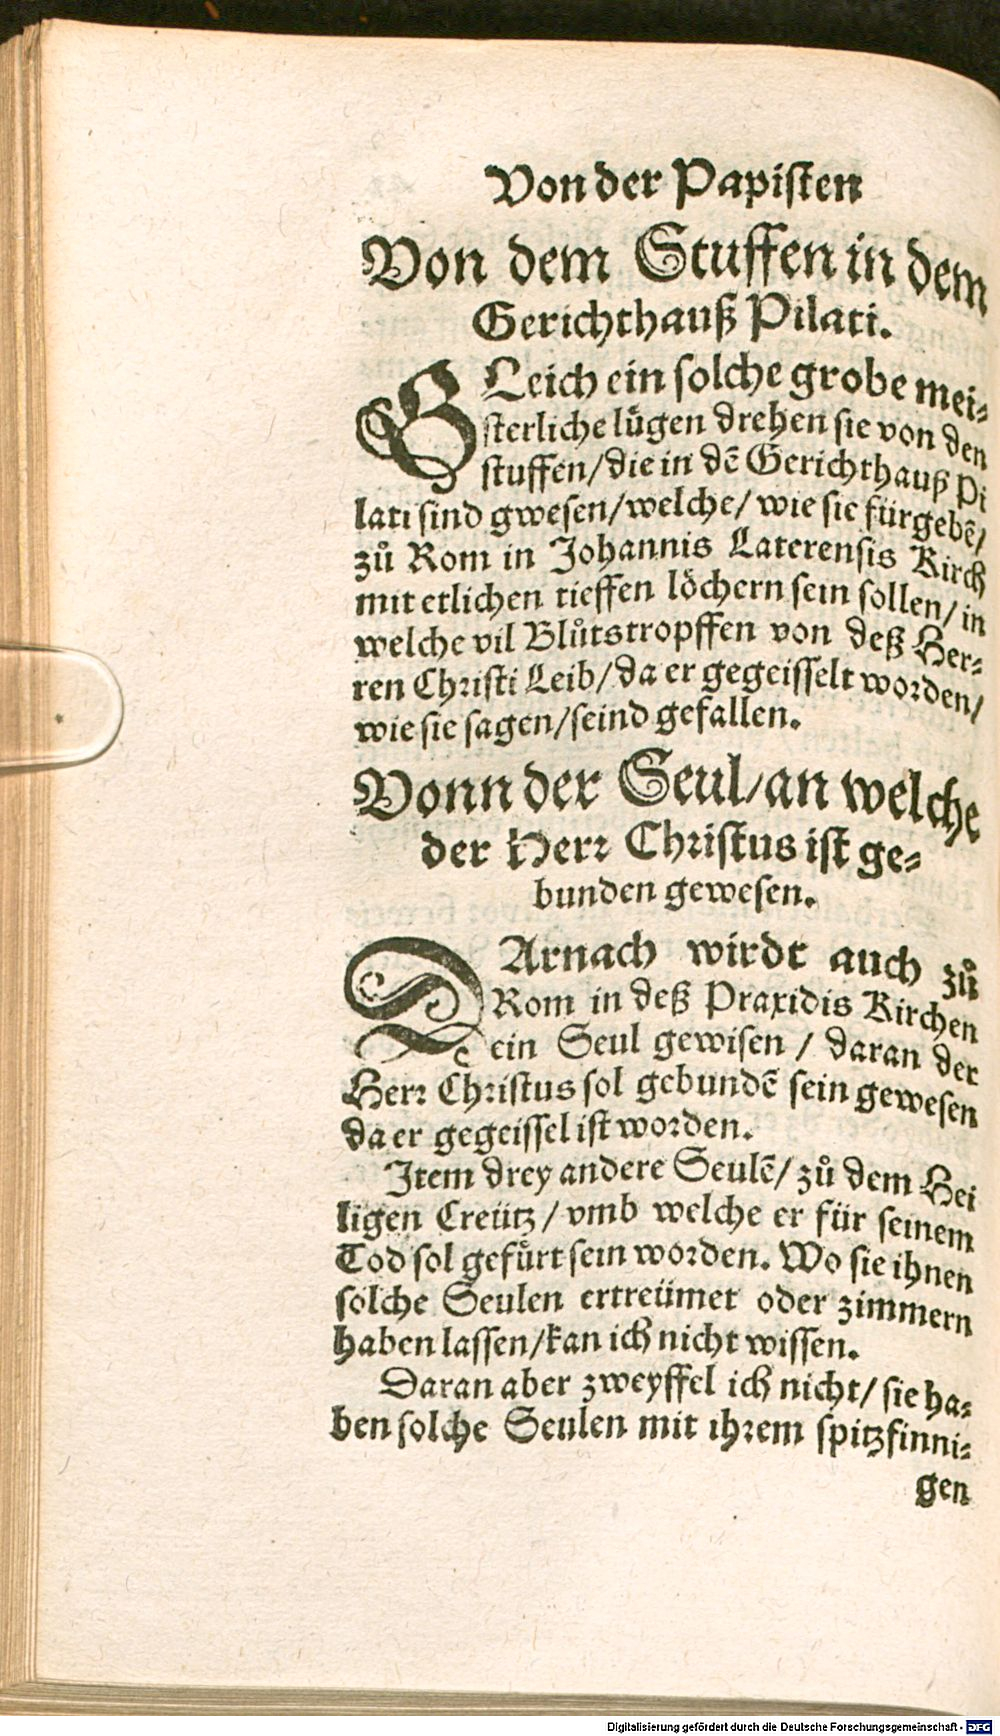 Von der Papisten
Von dem Stuffen in dem
Gerichthauß Pilati.
GLeich ein solche grobe mei⸗
sterliche lügen drehen sie von den
stuffen/die in dẽ Gerichthauß Pi
lati sind gwesen/welche/ wie sie fürgebẽ/
zů Rom in Johannis Laterensis Kirch
mit etlichen tieffen löchern sein sollen/in
welche vil Blůtstropffen von deß Her⸗
ren Christi Leib/da er gegeisselt worden/
wie sie sagen/seind gefallen.
Vonn der Seul/an welche
der Herr Christus ist ge⸗
bunden gewesen.
DArnach wirdt auch zů
Rom in deß Praxidis Kirchen
ein Seul gewisen / daran der
Herr Christus sol gebundẽ sein gewesen
da er gegeissel ist worden.
Item drey andere Seulẽ/ zů dem Hei
ligen Creütz/vmb welche er für seinem
Tod sol gefůrt sein worden. Wo sie ihnen
solche Seulen ertreümet oder zimmern
haben lassen/kan ich nicht wissen.
Daran aber zweyffel ich nicht/ sie ha⸗
ben solche Seulen mit ihrem spitzfinni⸗
gen
Digitalisierung gefördert durch die Deutsche Forschungsgemeinschaft - DFG